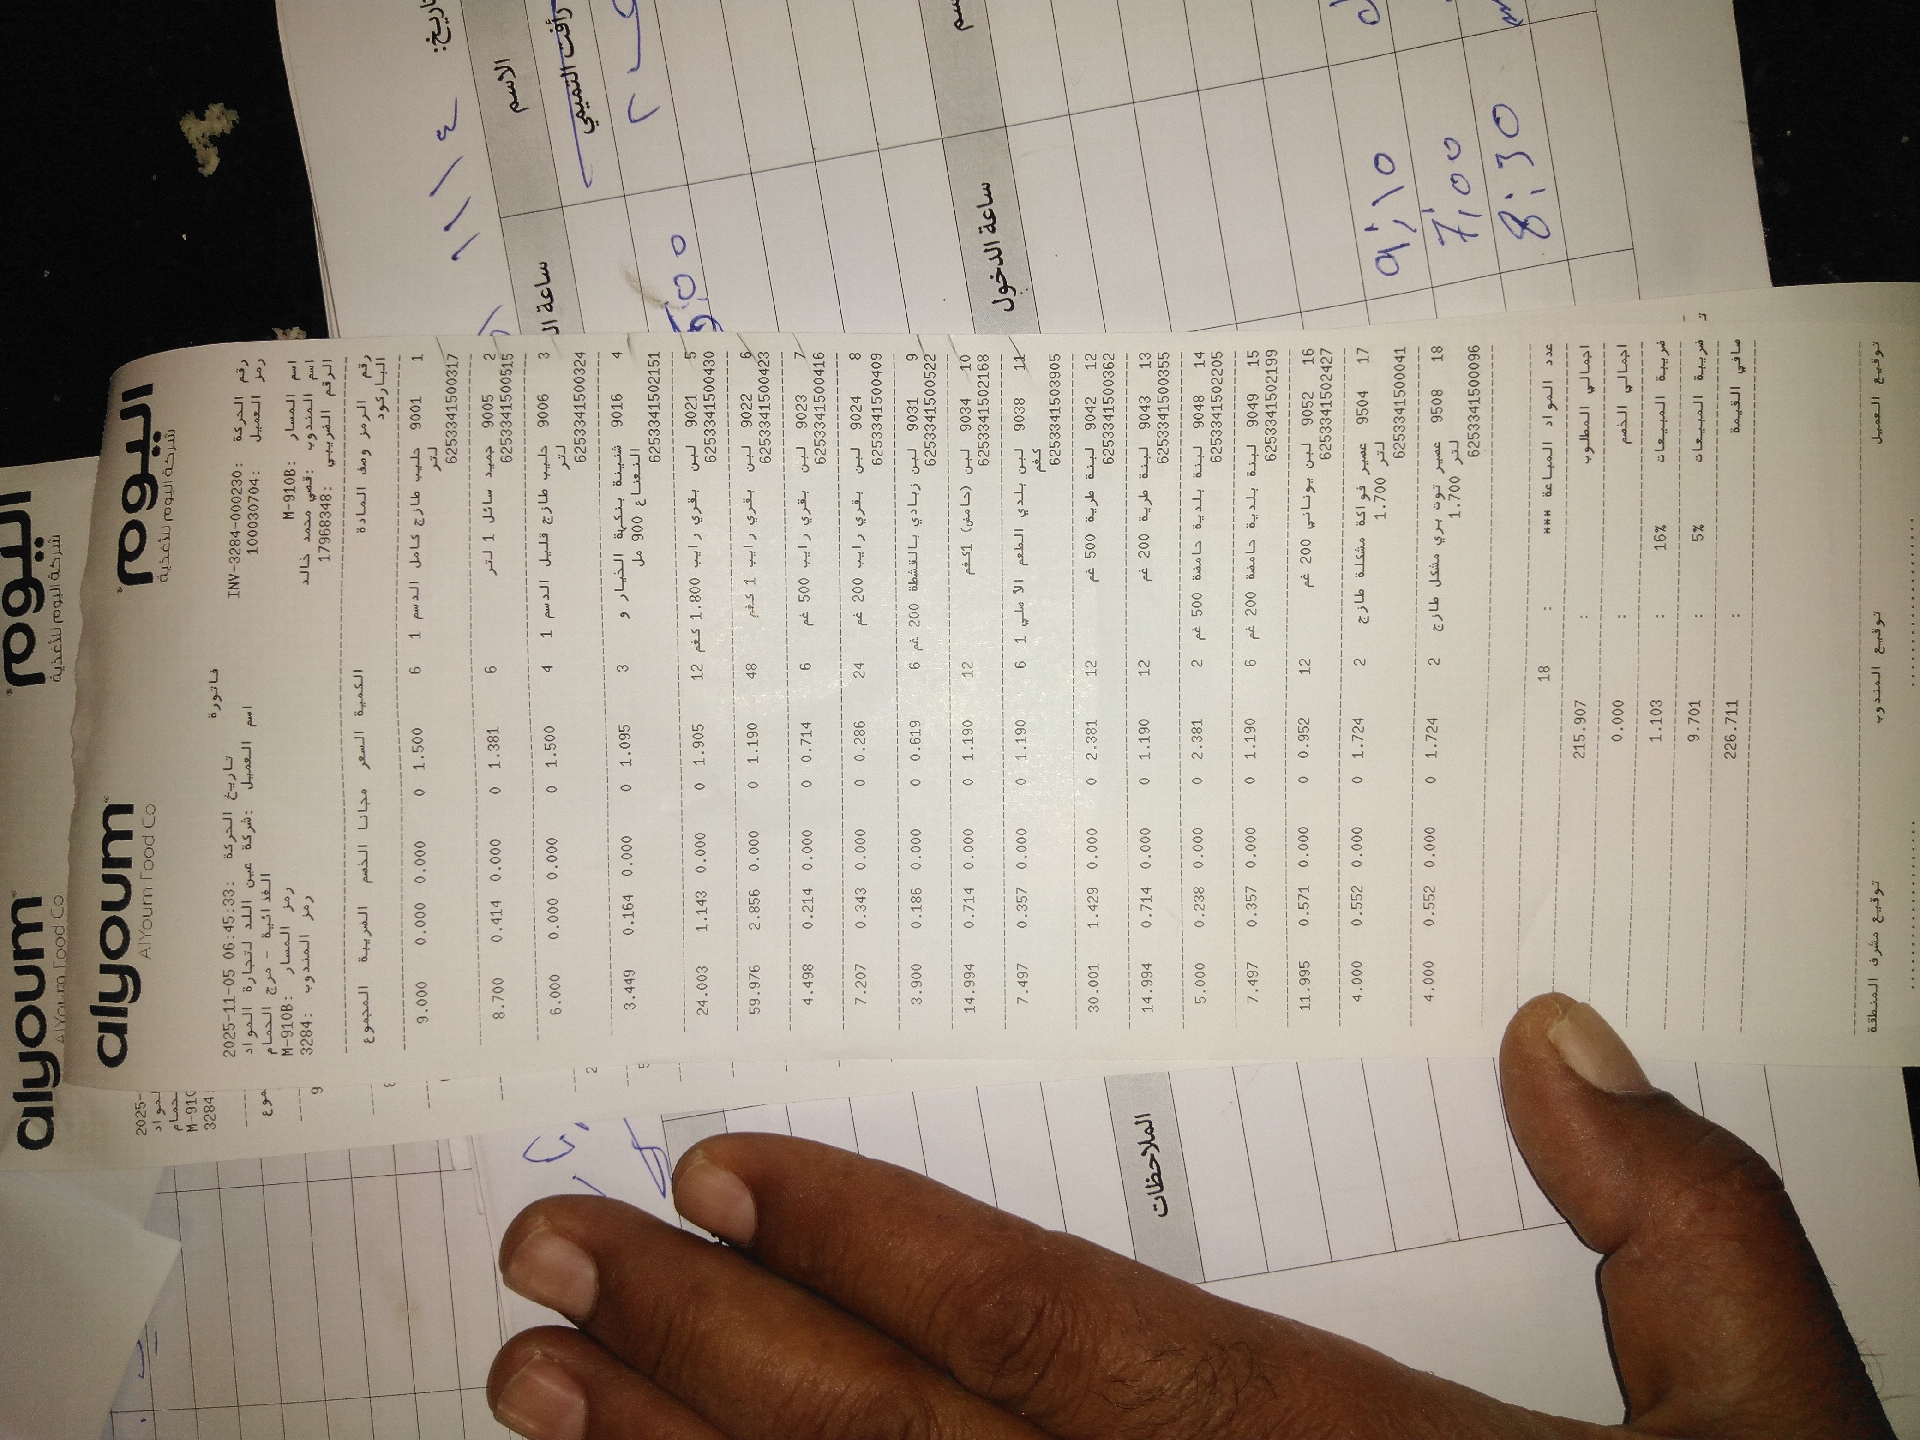 اليوم alyoum
شركة اليوم للأغذية AlYoum Food Co
اليوم alyoum
شركة اليوم للأغذية AlYoum Food Co
فاتورة
رقم الحركة :INV-3284-000230 تاريخ الحركة :2025-11-05 06:45:33
رمز العميل :100030704 اسم العميل :شركة عين اللد لتجارة المواد
الغذائية - مرج الحمام
اسم المسار :M-910B رمز المسار :M-910B
اسم المندوب :قصي محمد خالد رمز المندوب :3284
الرقم الضريبي :17968348
رقم الرمز وصف المادة الكمية السعر مجانا الخصم الضريبة المجموع
الباركود
1 9001 حليب طازج كامل الدسم 1 6 1.500 0 0.000 0.000 9.000
لتر
6253341500317
2 9005 جميد سائل 1 لتر 6 1.381 0 0.000 0.414 8.700
6253341500515
3 9006 حليب طازج قليل الدسم 1 4 1.500 0 0.000 0.000 6.000
لتر
6253341500324
4 9016 شنينة بنكهة الخيار و 3 1.095 0 0.000 0.164 3.449
النعناع 900 مل
6253341502151
5 9021 لبن بقري رايب 1.800 كغم 12 1.905 0 0.000 1.143 24.003
6253341500430
6 9022 لبن بقري رايب 1 كغم 48 1.190 0 0.000 2.856 59.976
6253341500423
7 9023 لبن بقري رايب 500 غم 6 0.714 0 0.000 0.214 4.498
6253341500416
8 9024 لبن بقري رايب 200 غم 24 0.286 0 0.000 0.343 7.207
6253341500409
9 9031 لبن زبادي بالقشطة 200 غم 6 0.619 0 0.000 0.186 3.900
6253341500522
10 9034 لبن (حامض) 1كغم 12 1.190 0 0.000 0.714 14.994
6253341502168
11 9038 لبن بلدي الطعم الاصلي 1 6 1.190 0 0.000 0.357 7.497
كغم
6253341503905
12 9042 لبنة طرية 500 غم 12 2.381 0 0.000 1.429 30.001
6253341500362
13 9043 لبنة طرية 200 غم 12 1.190 0 0.000 0.714 14.994
6253341500355
14 9048 لبنة بلدية حامضة 500 غم 2 2.381 0 0.000 0.238 5.000
6253341502205
15 9049 لبنة بلدية حامضة 200 غم 6 1.190 0 0.000 0.357 7.497
6253341502199
16 9052 لبن يوناني 200 غم 12 0.952 0 0.000 0.571 11.995
6253341502427
17 9504 عصير فواكة مشكلة طازج 2 1.724 0 0.000 0.552 4.000
1.700 لتر
6253341500041
18 9508 عصير توت بري مشكل طازج 2 1.724 0 0.000 0.552 4.000
1.700 لتر
6253341500096
عدد المواد المباعة *** : 18
اجمالي المطلوب : 215.907
اجمالي الخصم : 0.000
ضريبة المبيعات 16% : 1.103
ضريبة المبيعات 5% : 9.701
صافي القيمة : 226.711
توقيع العميل توقيع المندوب توقيع مشرف المنطقة
2025-
M-910
3284
الاسم
رأفت التميمي
ساعة الدخول
الملاحظات
١١/٤
9:10
7:00
8:30